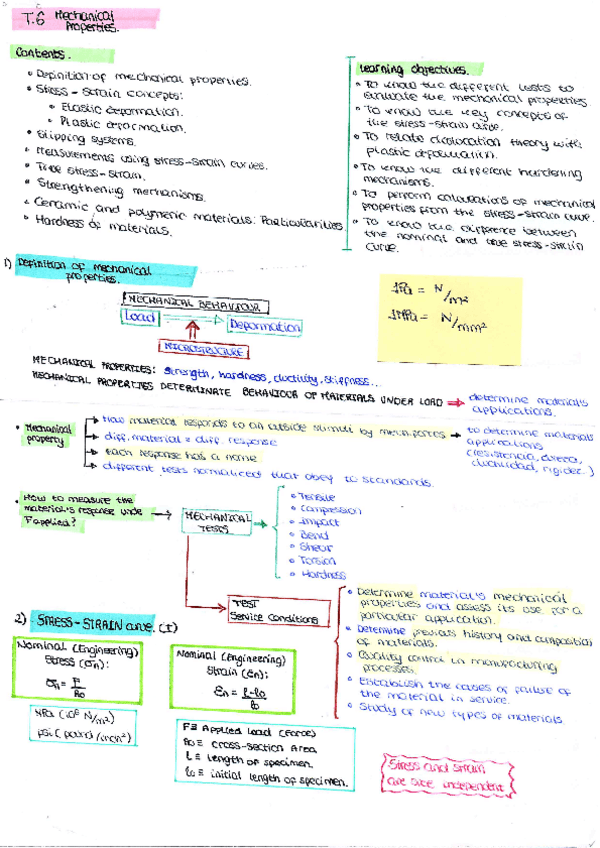 T.6 Mechanical
Properties.
Contents.
• Definition of mechanical properties.
• Stress - strain concepts:
• Elastic deformation.
• Plastic deformation.
• Slipping systems.
• Measurements using stress-strain curves.
• True stress-strain.
• Strengthening mechanisms.
• Ceramic and polymeric materials: Particularities.
• Hardness of materials.
Learning objectives.
• To know the different tests to
evaluate the mechanical properties
• To know the key concepts of
the stress-strain curve.
• To relate dislocation theory with
plastic deformation.
• To know the different hardening
mechanisms.
• To perform calculations of mechanical
properties from the stress-strain curve.
• To know the difference between
the nominal and true stress-strain
curve.
1) Definition of mechanical
properties.
MECHANICAL BEHAVIOUR
Load
Deformation
MICROSTRUCTURE
1Pa = N/m²
1MPa = N/mm²
MECHANICAL PROPERTIES: strength, hardness, ductivity, stiffness...
MECHANICAL PROPERTIES DETERMINATE BEHAVIOUR OF MATERIALS UNDER LOAD ⇒ determine materials
applications.
• Mechanical
property
→ How material responds to an outside stimuli by mech. forces → to determine materials
applications
(resistencia, dureza,
ductilidad, rigidez.)
→ diff. material = diff. response
→ each response has a name
→ different tests normalized that obey to standards.
• How to measure the
material's response under
F applied?
→ MECHANICAL
TESTS
• Tensile
• Compression
• Impact
• Bend
• Shear
• Torsion
• Hardness
TEST
Service Conditions
• Determine material's mechanical
properties and assess its use for a
particular application.
• Determine previous history and composition
of materials.
• Quality control in manufacturing
processes.
• Establish the causes of failure of
the material in service.
• Study of new types of materials
2) STRESS-STRAIN curve. (I)
Nominal (Engineering)
Stress (σn):
σn = F/A0
MPa (10⁶ N/m²)
psi (pound/inch²)
Nominal (Engineering)
Strain (εn):
εn = l-l0/l0
F ≡ Applied Load (Force)
A0 ≡ cross-section Area
l ≡ length of specimen.
l0 ≡ initial length of specimen.
Stress and strain
are size independent